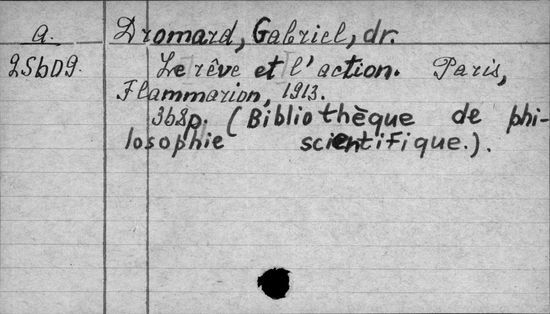 a. Dromard, Gabriel, dr.
25609. Le rêve et l'action. Paris,
Flammarion, 1913.
368p. (Bibliothèque de phi-
losophie scientifique.).